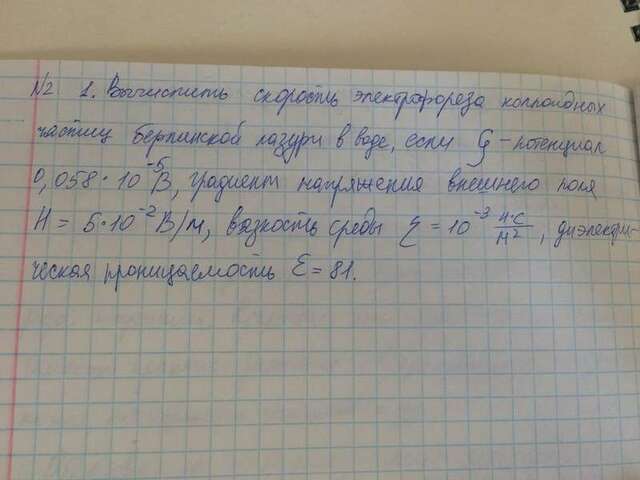 №2 1. Вычислить скорость электрофореза коллоидных
частиц берлинской лазури в воде, если ζ - потенциал
0,058·10⁻⁵В, градиент напряжения внешнего поля
H = 5·10⁻²В/м, вязкость среды η = 10⁻³ н·с/м², диэлектри-
ческая проницаемость ε = 81.